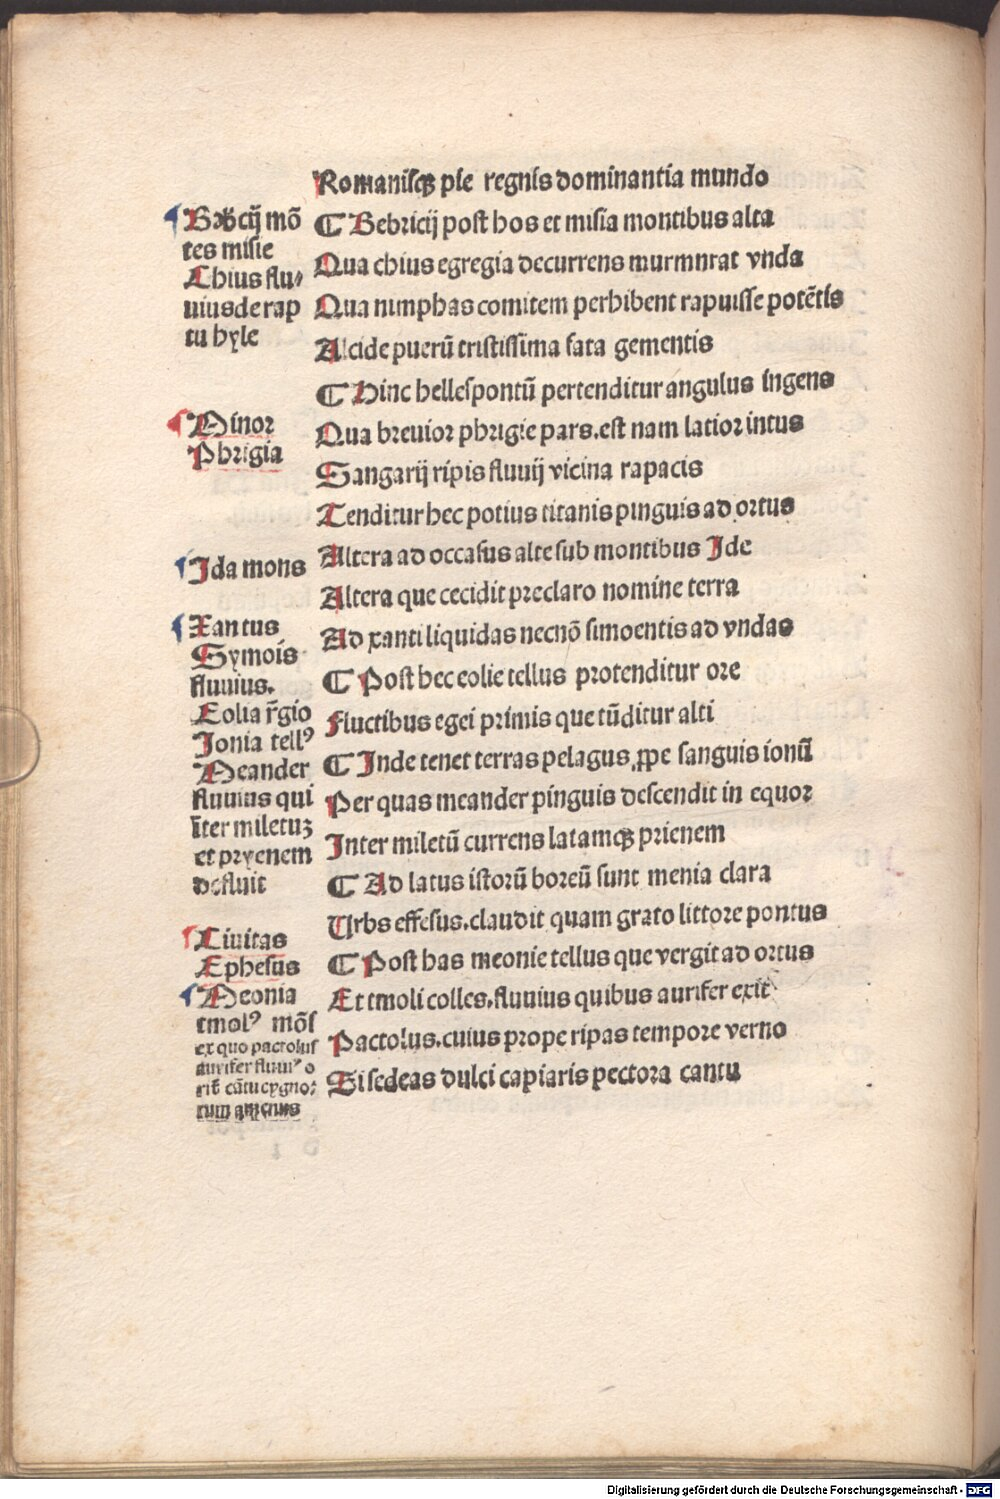 Romanisqꝫ pie regnis dominantia mundo
¶ Bebricij post hos et misia montibus alta
Qua chius egregia decurrens murmnrat vnda
Qua nimphas comitem perhibent rapuisse potētis
Alcide puerū tristissima fata gementis
¶ Hinc hellespontū pertenditur angulus ingens
Qua breuior phrigie pars.est nam latior intus
Sangarij ripis fluuij vicina rapacis
Tenditur hec potius titanis pinguis ad ortus
Altera ad occasus alte sub montibus Ide
Altera que cecidit preclaro nomine terra
Ad xanti liquidas necnō simoentis ad vndas
¶ Post hec eolie tellus protenditur ore
Fluctibus egei primis que tūditur alti
¶ Inde tenet terras pelagus ꝓpe sanguis ionū
Per quas meander pinguis descendit in equor
Inter miletū currens latamqꝫ prienem
¶ Ad latus istorū boreū sunt menia clara
Urbs effesus.claudit quam grato littore pontus
¶ Post has meonie tellus que vergit ad ortus
Et tmoli colles.fluuius quibus aurifer exit
Pactolus.cuius prope ripas tempore verno
Si sedeas dulci capiaris pectora cantu
cij mō
tes misie
Chius flu⸗
uius de rap
tu hyle
Minor
Phrigia
Ida mons
Xantus
Symois
fluuius.
Eolia r̄gio
Ionia tellꝰ
Meander
fluuius qui
īter miletuꝫ
et pryenem
defluit
Ciuitas
Ephesus
Meonia
tmolꝰ mōs
ex quo pactolus
aurifer fluuiꝰ o
rit̄ cātu cygno⸗
rum
Digitalisierung gefördert durch die Deutsche Forschungsgemeinschaft - DFG